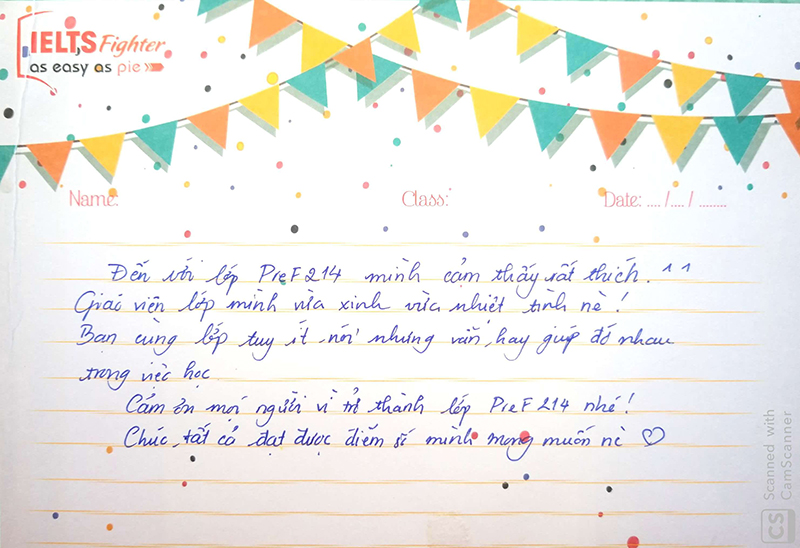 IELTS Fighter
as easy as pie
Name:
Class:
Date: .... /.... / ........
Đến với lớp PreF214 mình cảm thấy rất thích. ^^
Giáo viên lớp mình vừa xinh vừa nhiệt tình nè!
Bạn cùng lớp tuy ít nói nhưng vẫn hay giúp đỡ nhau
trong việc học.
Cảm ơn mọi người vì trở thành lớp PreF214 nhé!
Chúc tất cả đạt được điểm số mình mong muốn nè ♡
CS
Scanned with
CamScanner